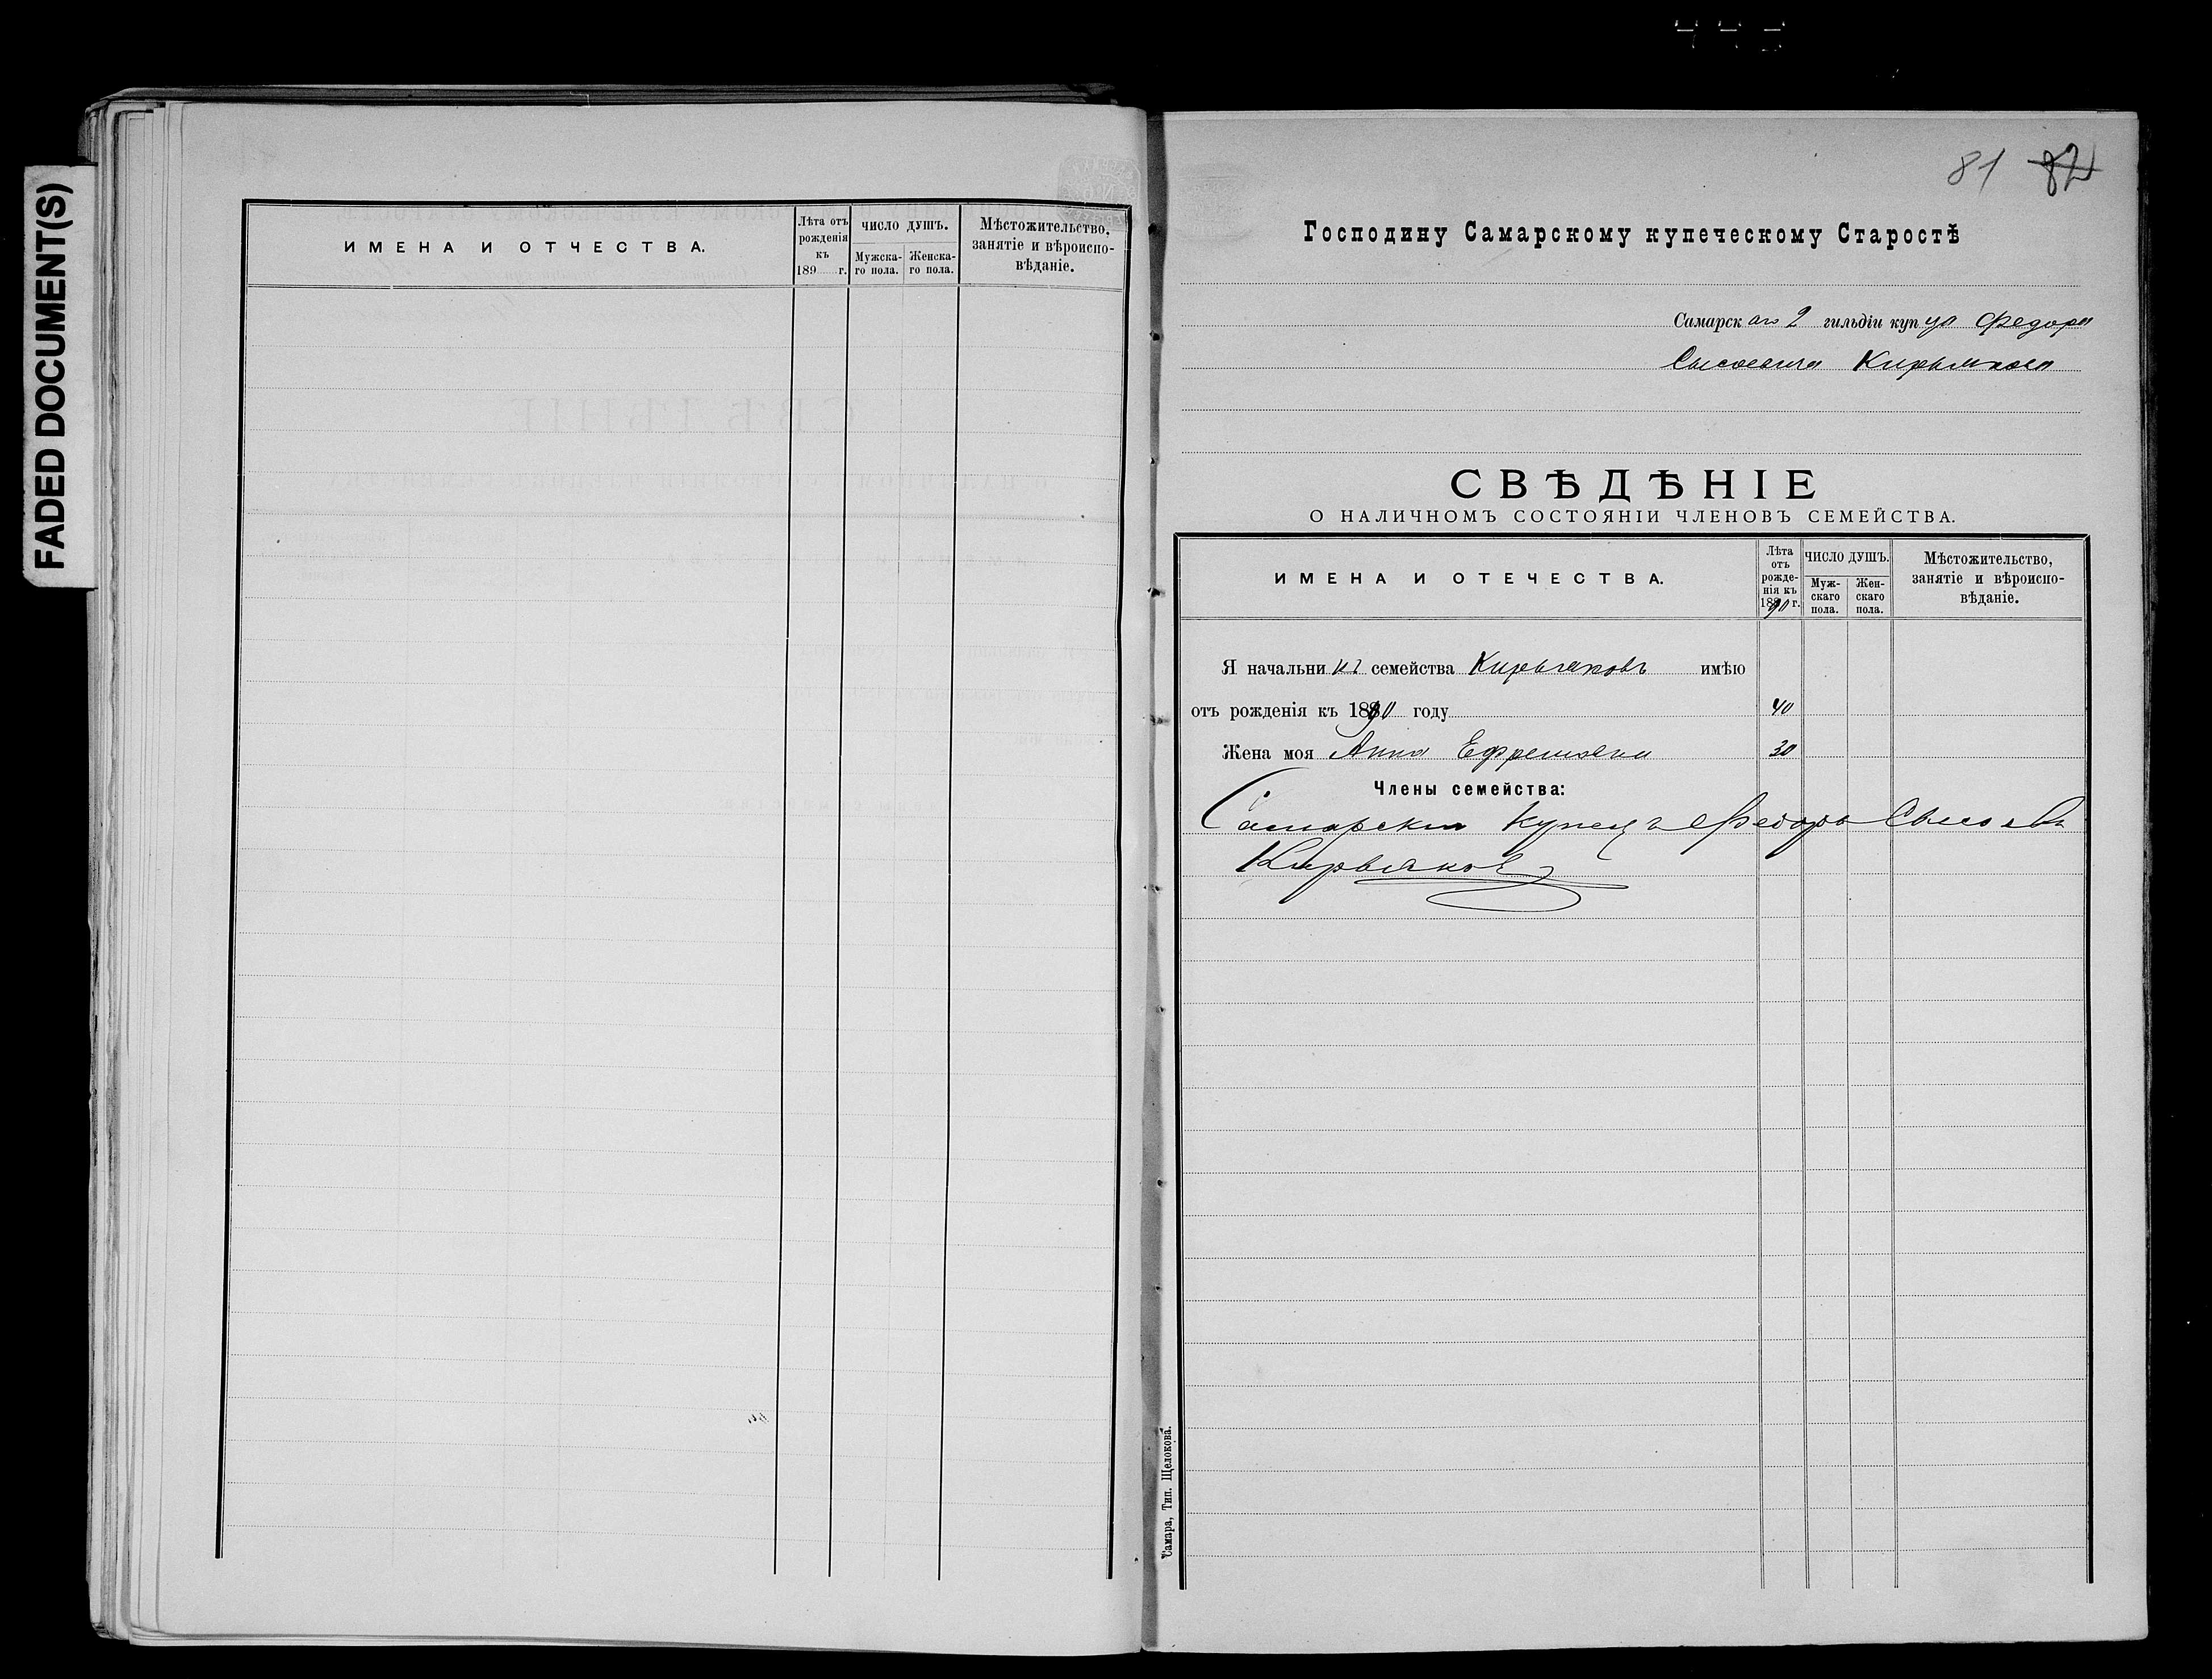 FADED DOCUMENT(S)
ИМЕНА И ОТЧЕСТВА.
Лѣта отъ рожденія къ 189 г.
ЧИСЛО ДУШЪ.
Мужска-го пола.
Женска-го пола.
Мѣстожительство, занятіе и вѣроиспо-вѣданіе.
81 82
Господину Самарскому купеческому Старостѣ
Самарскаго 2 гильдіи купца Федора
Сысоевича Кирьякова
СВѢДѢНІЕ
О НАЛИЧНОМЪ СОСТОЯНІИ ЧЛЕНОВЪ СЕМЕЙСТВА.
ИМЕНА И ОТЕЧЕСТВА.
Лѣта
отъ
рожде-
нія къ
1890 г.
ЧИСЛО ДУШЪ.
Муж-
скаго
пола.
Жен-
скаго
пола.
Мѣстожительство,
занятіе и вѣроиспо-
вѣданіе.
Я начальникъ семейства Кирьяковъ имѣю
отъ рожденія къ 1890 году 40
Жена моя Анна Ефремовна 30
Члены семейства:
Самарски Купецъ Федоръ Сысоевъ
Кирьяков
Самара, Тип. Щелокова.